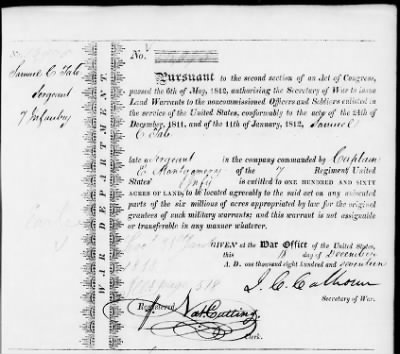 Samuel C Tate
Sergeant
7 Infantry
WAR DEPARTMENT.
No.
Pursuant to the second section of an Act of Congress,
passed the 6th of May, 1812, authorising the Secretary of War to issue
Land Warrants to the noncommissioned Officers and Soldiers enlisted in
the service of the United States, conformably to the acts of the 24th of
December, 1811, and of the 11th of January, 1812, Samuel C
Tate
late a Sergeant in the company commanded by Captain
E Montgomery of the 7 Regiment United
States' Infy is entitled to ONE HUNDRED AND SIXTY
ACRES OF LAND, to be located agreeably to the said act on any unlocated
parts of the six millions of acres appropriated by law for the original
grantees of such military warrants; and this warrant is not assignable
or transferable in any manner whatever.
GIVEN at the War Office of the United States,
this day of December
A. D. one thousand eight hundred and seventeen
page 518
J. C. Calhoun
Secretary of War.
Registered Nat Cutting
Clerk.